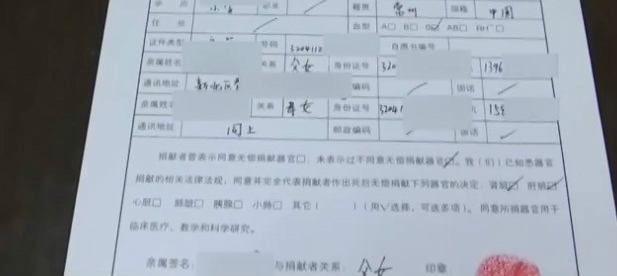 籍贯 常州 国籍 中国
血型 A□ B□ O☑ AB□ RH⁻□
证件类型 号码 3204112 自愿书编号
亲属姓名 关系 父女 身份证号 320 1396
通讯地址 新北区 编码 电话
亲属姓 关系 母女 身份证号 32041 158
通讯地址 同上 邮政编码 电话
捐献者曾表示同意无偿捐献器官□,未表示过不同意无偿捐献器官☑。我(们)已知悉器官
捐献的相关法律法规,同意并完全代表捐献者作出死后无偿捐献下列器官的决定,肾脏☑ 肝脏☑
心脏□ 肺脏□ 胰腺□ 小肠□ 其它( )(用√选择,可选多项)。同意所捐器官用于
临床医疗、教学和科学研究。
亲属签名: 与捐献者关系: 父女 印章